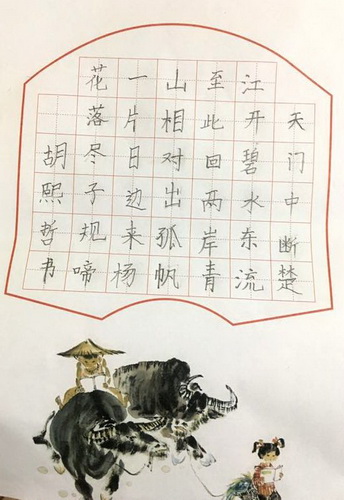 天门中断楚
江开碧水东流
至此回两岸青
山相对出孤帆
一片日边来杨
花落尽子规啼
胡熙哲书